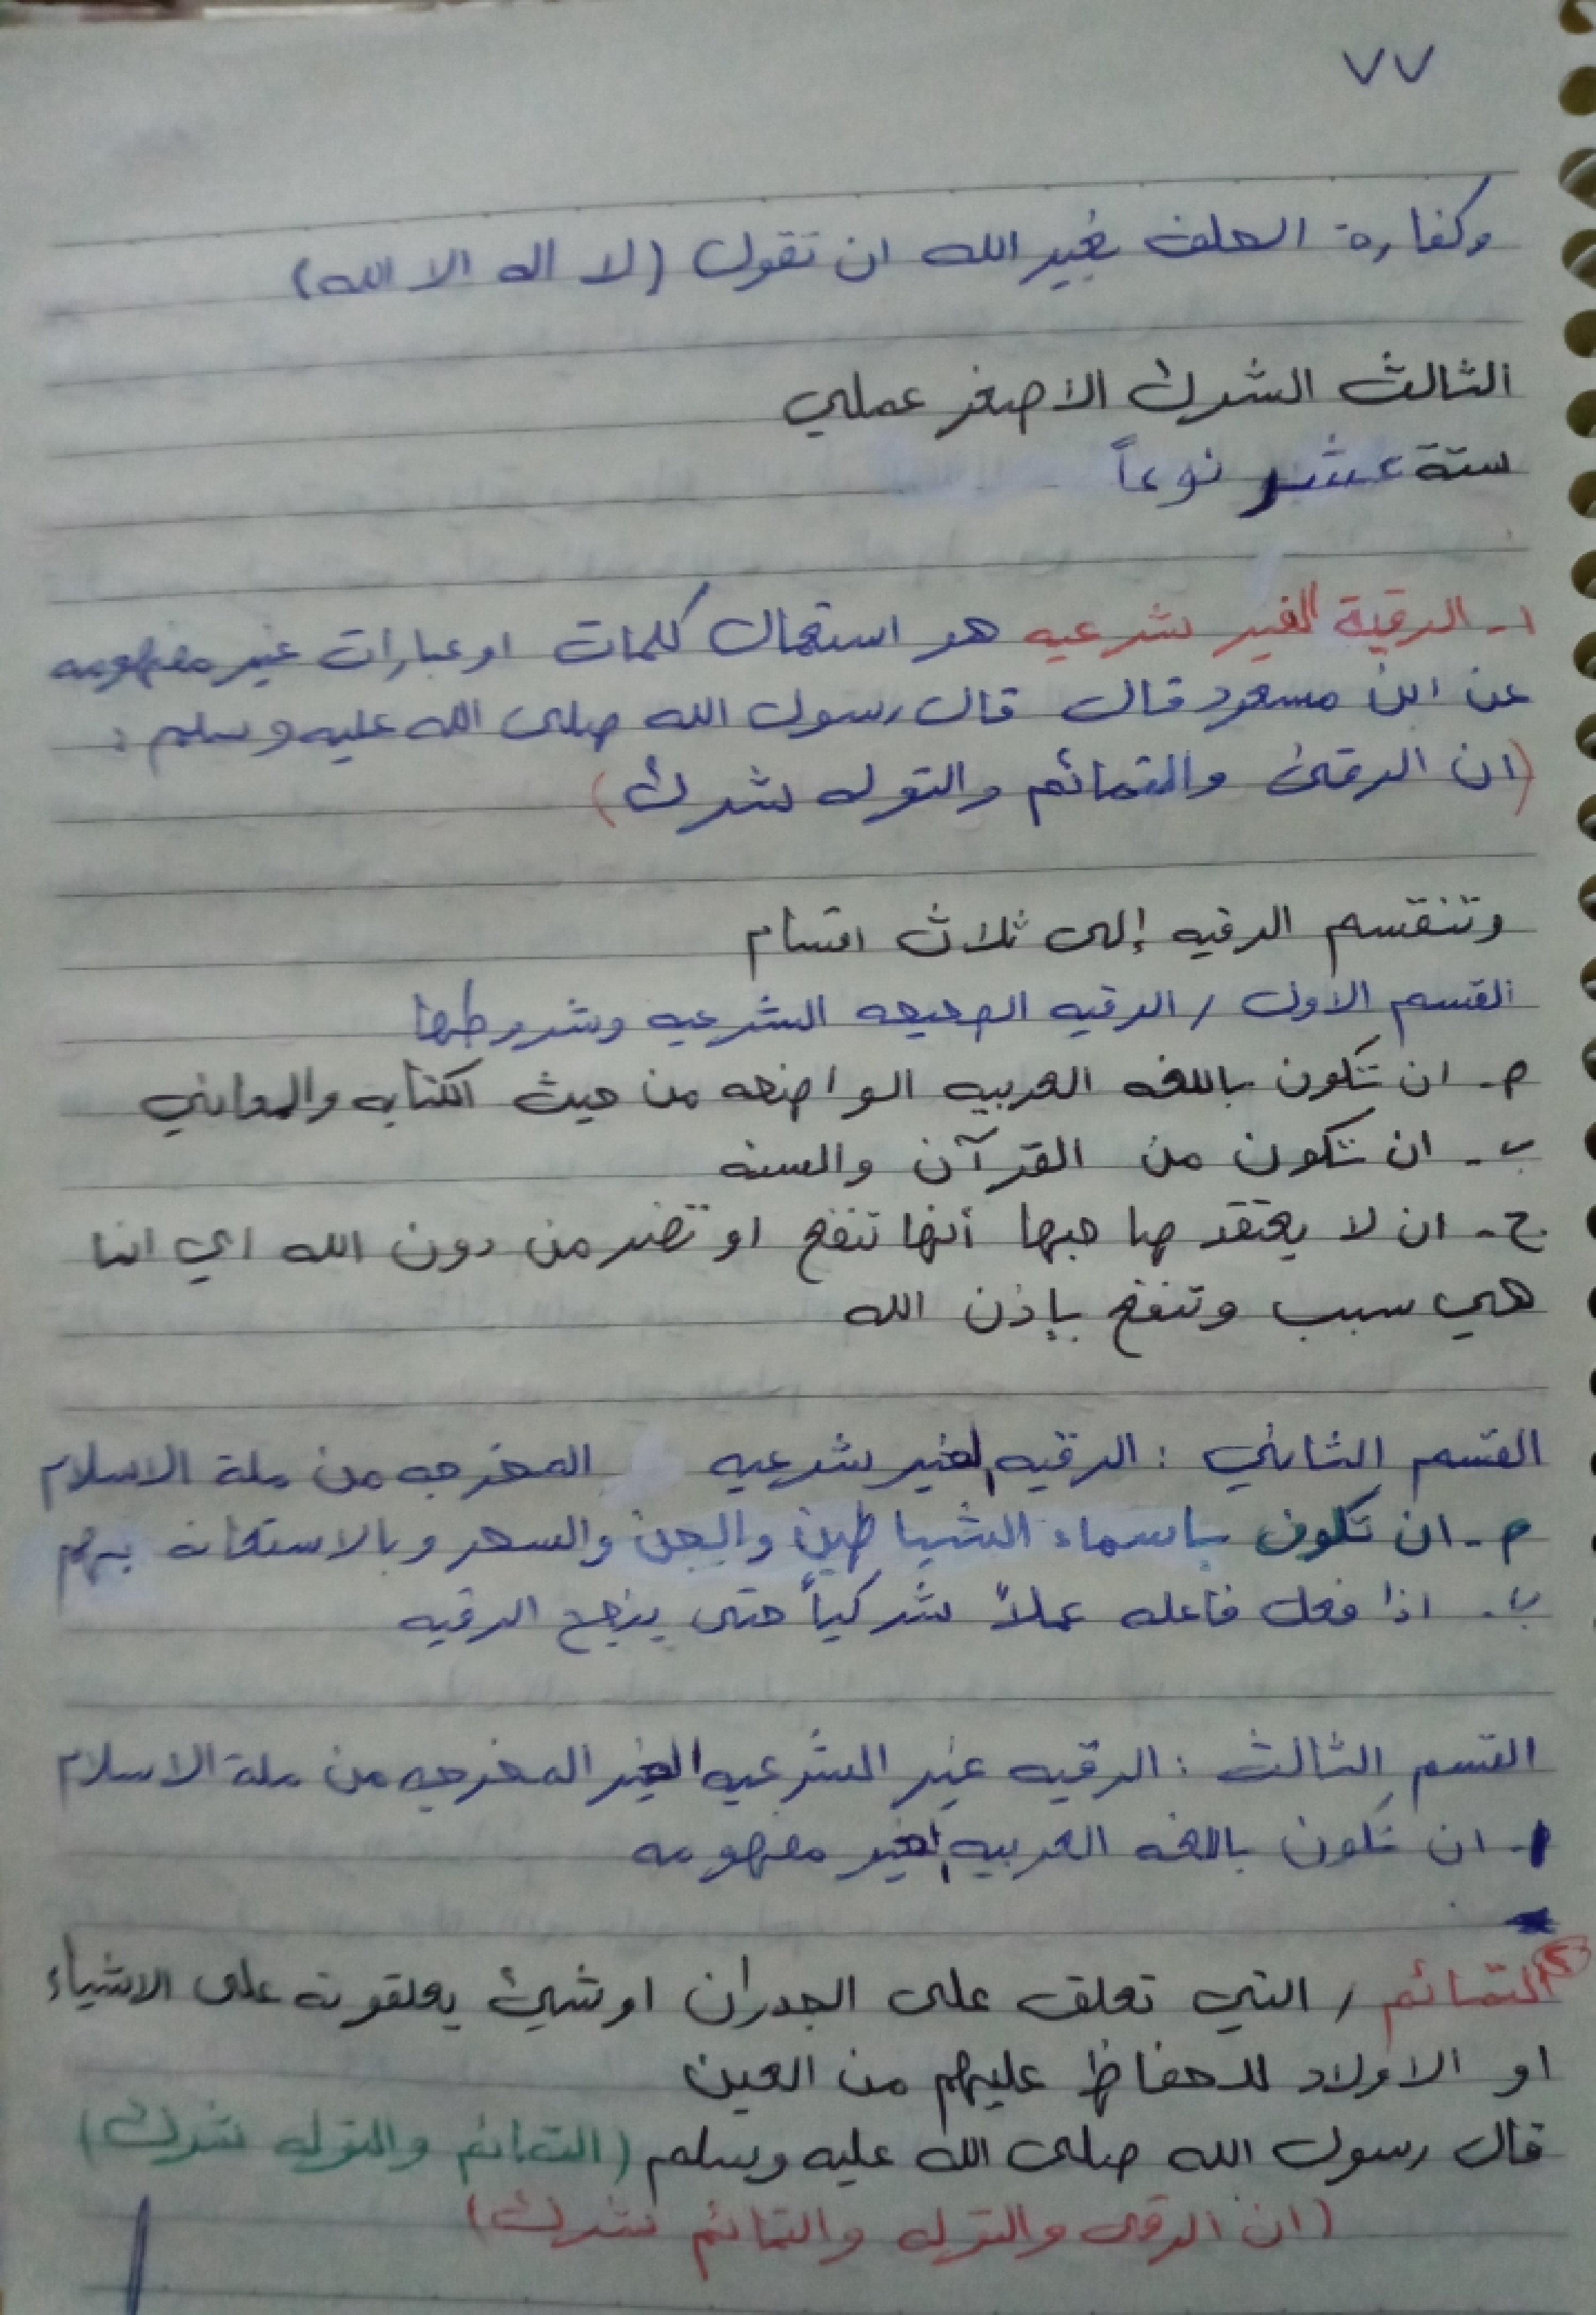 ٧٧
وكفارة الحلف بغير الله ان تقول (لا اله الا الله)
الثالث الشرك الاصغر عملي
ستة عشر نوعاً
١- الرقية الغير شرعيه هو استعمال كلمات او عبارات غير مفهومه
عن ابن مسعود قال قال رسول الله صلى الله عليه وسلم :
(ان الرقى والتمائم والتوله شرك)
وتنقسم الرقيه إلى ثلاث اقسام
القسم الاول / الرقيه الصحيحه الشرعيه وشروطها
م- ان تكون باللغه العربيه الواضحه من حيث الكتابه والمعاني
ب- ان تكون من القرآن والسنه
ج- ان لا يعتقد صاحبها أنها تنفع او تضر من دون الله اي انما
هي سبب وتنفع بإذن الله
القسم الثاني : الرقيه الغير شرعيه المخرجه من ملة الاسلام
م- ان تكون باسماء الشياطين والجن والسحر وبالاستعانه بهم
ب- اذا فعل فاعله عملاً شركياً حتى ينجح الرقيه
القسم الثالث : الرقيه غير الشرعيه الغير المخرجه من ملة الاسلام
١- ان تكون باللغه العربيه الغير مفهومه
٢ التمائم / التي تعلق على الجدران او شيئ يعلقونه على الاشياء
او الاولاد للحفاظ عليهم من العين
قال رسول الله صلى الله عليه وسلم (التمائم والتوله شرك)
(ان الرقى والتوله والتمائم شرك)